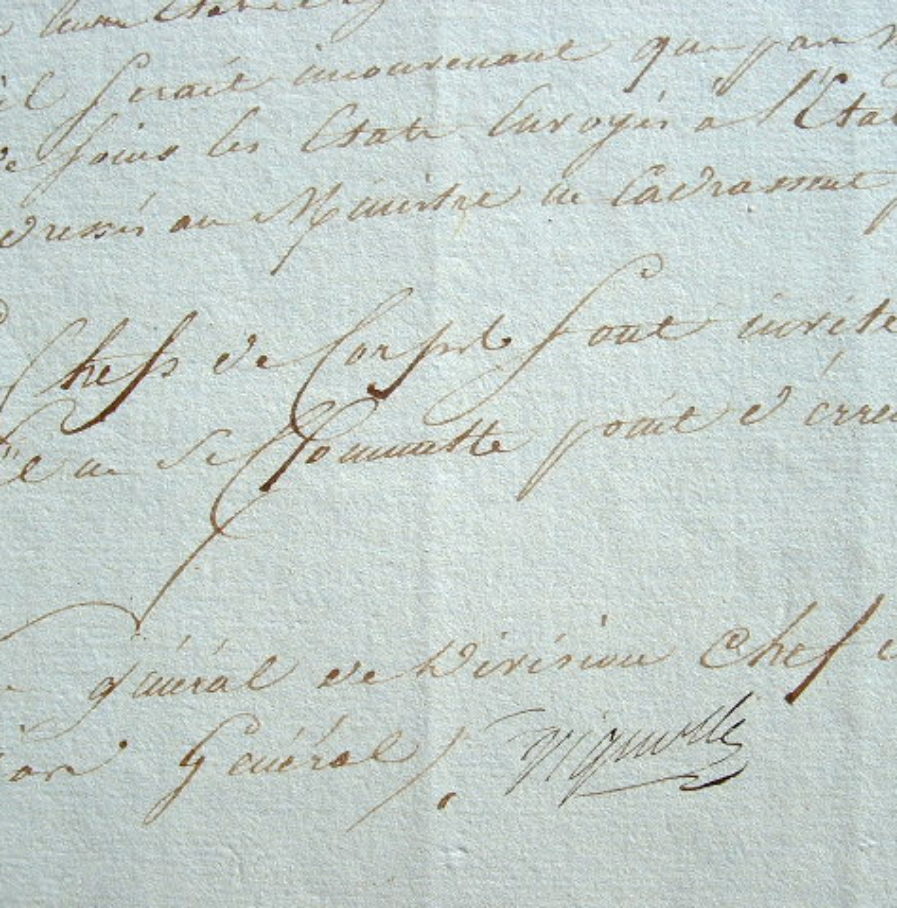 il serait inconvenant que par
de soins les Etats Envoyés à l'Eta
dressés au Ministre ne Cadrassent
Chefs de Corps Sont invité
il ne se Commette point d'erreu
général de Division Chef
Général Vignolle